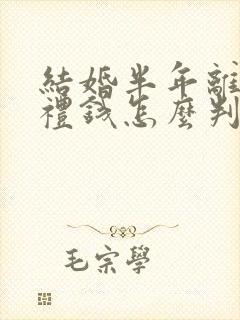 結婚半年離
禮錢怎麼判
毛宗學